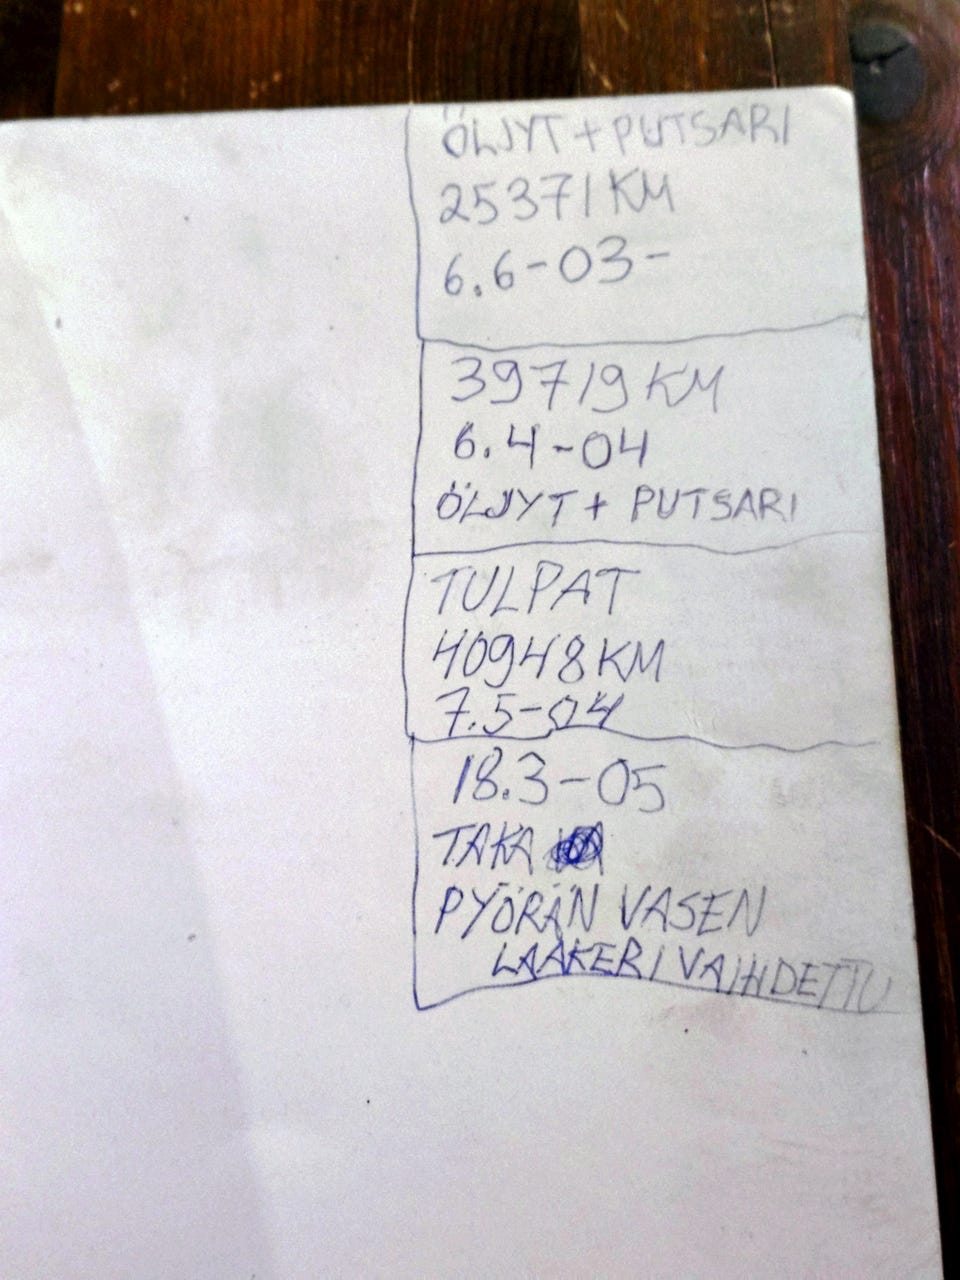 ÖLJYT + PUTSARI
25371 KM
6.6-03-
39719 KM
6.4-04
ÖLJYT + PUTSARI
TULPAT
40948 KM
7.5-04
18.3-05
TAKA
PYÖRÄN VASEN
LAAKERI VAIHDETTU